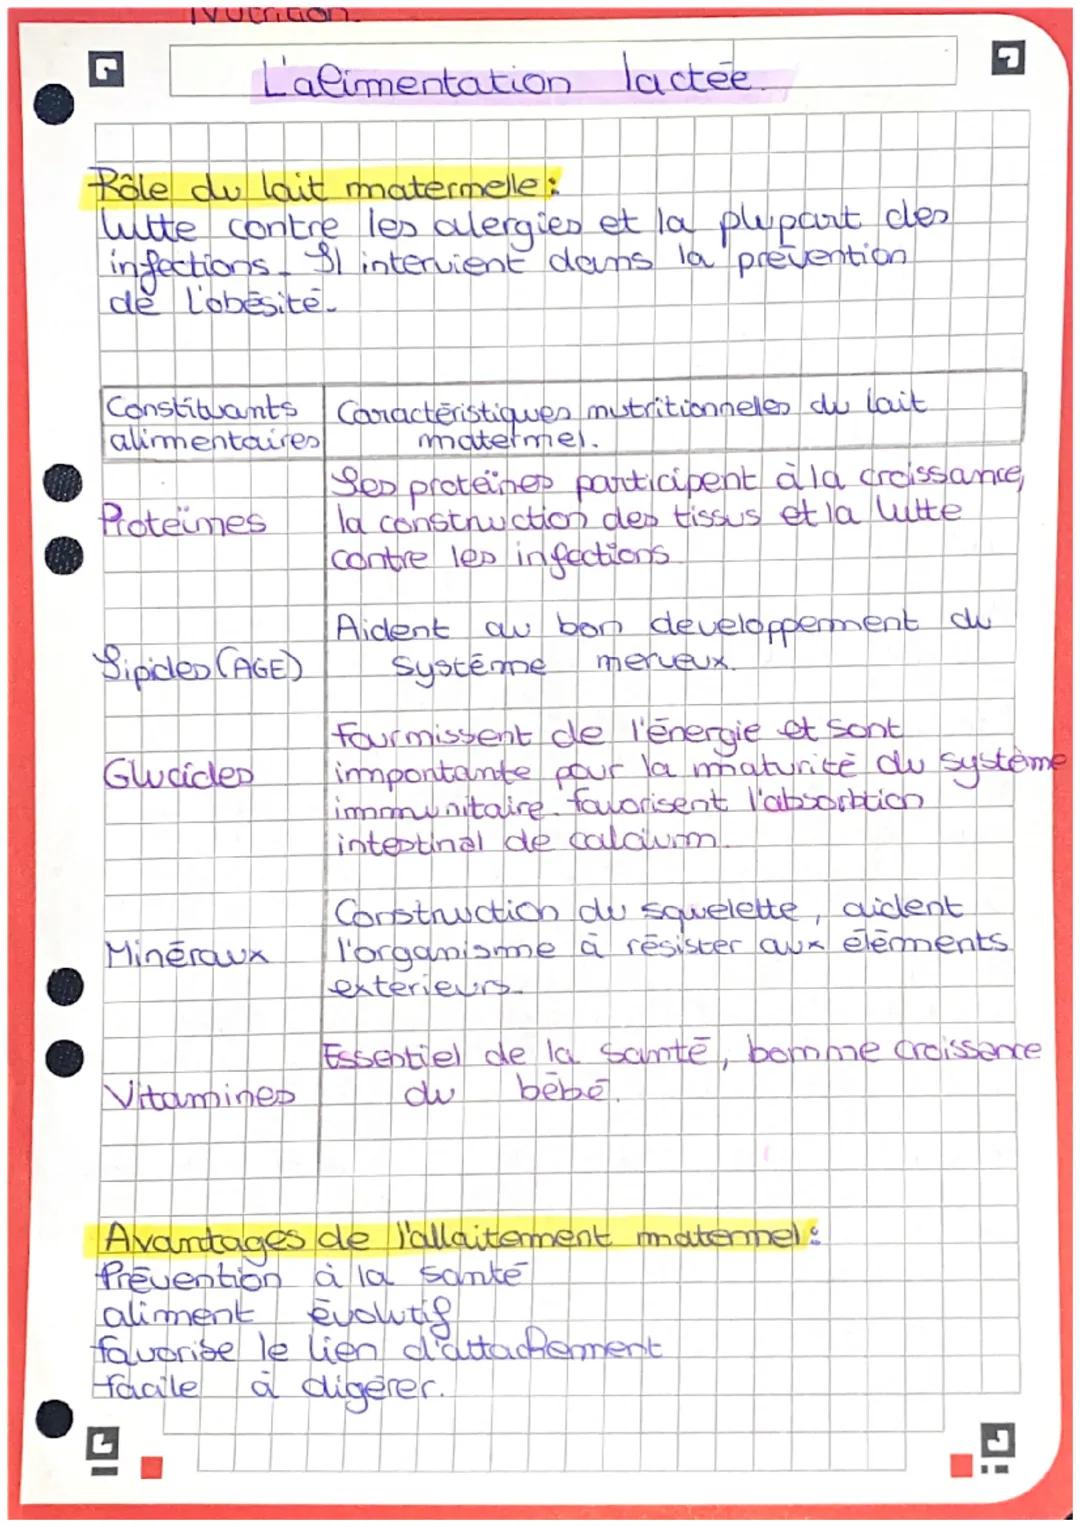 Nutrition.
L'alimentation lactée.
Rôle du lait maternelle :
lutte contre les alergies et la plupart des
infections. Il intervient dans la prévention
de l'obésité.
Constituants alimentaires
Caractéristiques nutritionneles du lait
maternel.
Proteïnes
Les proteïnes participent à la croissance,
la construction des tissus et la lutte
contre les infections
Lipides (AGE)
Aident au bon developpement du
système nerveux.
Glucides
Fournissent de l'énergie et sont
importante pour la maturité du système
immunitaire. favorisent l'absorbtion
intestinal de calcium.
Minéraux
Construction du squelette, aident
l'organisme à résister aux éléments
exterieurs.
Vitamines
Essentiel de la santé, bonne croissance
du bébé.
Avantages de l'allaitement maternel :
Prévention à la santé
aliment évolutif
favorise le lien d'attachement
facile à digérer.